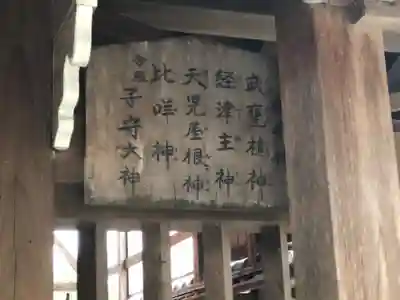 武甕槌神
経津主神
天児屋根神
比咩神
合殿 子守大神